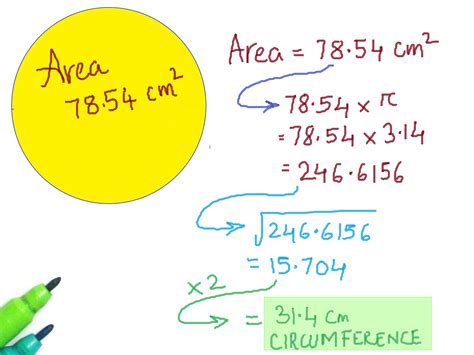 Area
78.54 cm²
Area = 78.54 cm²
78.54 x π
= 78.54 x 3.14
= 246.6156
√246.6156
= 15.704
x2
= 31.4 cm
CIRCUMFERENCE